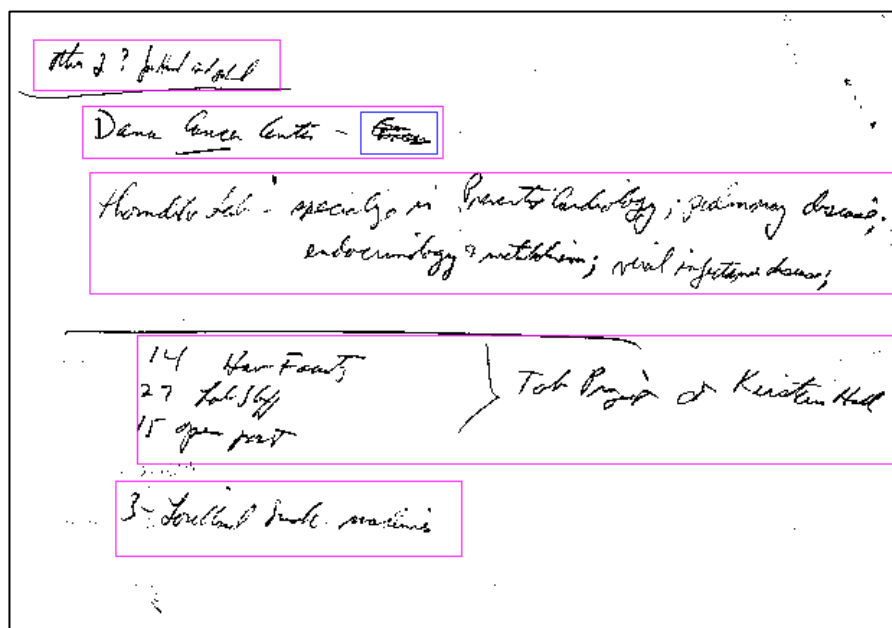 Dana Cancer Center -
Thorndike Lab - specialize in Preventive Cardiology; pulmonary disease;
endocrinology & metabolism; viral infectious disease;
14 Harv Faculty
27 Lab Staff
15 open post
Tob Project at Kirstein Hall
3- Lorillard Smoke machines